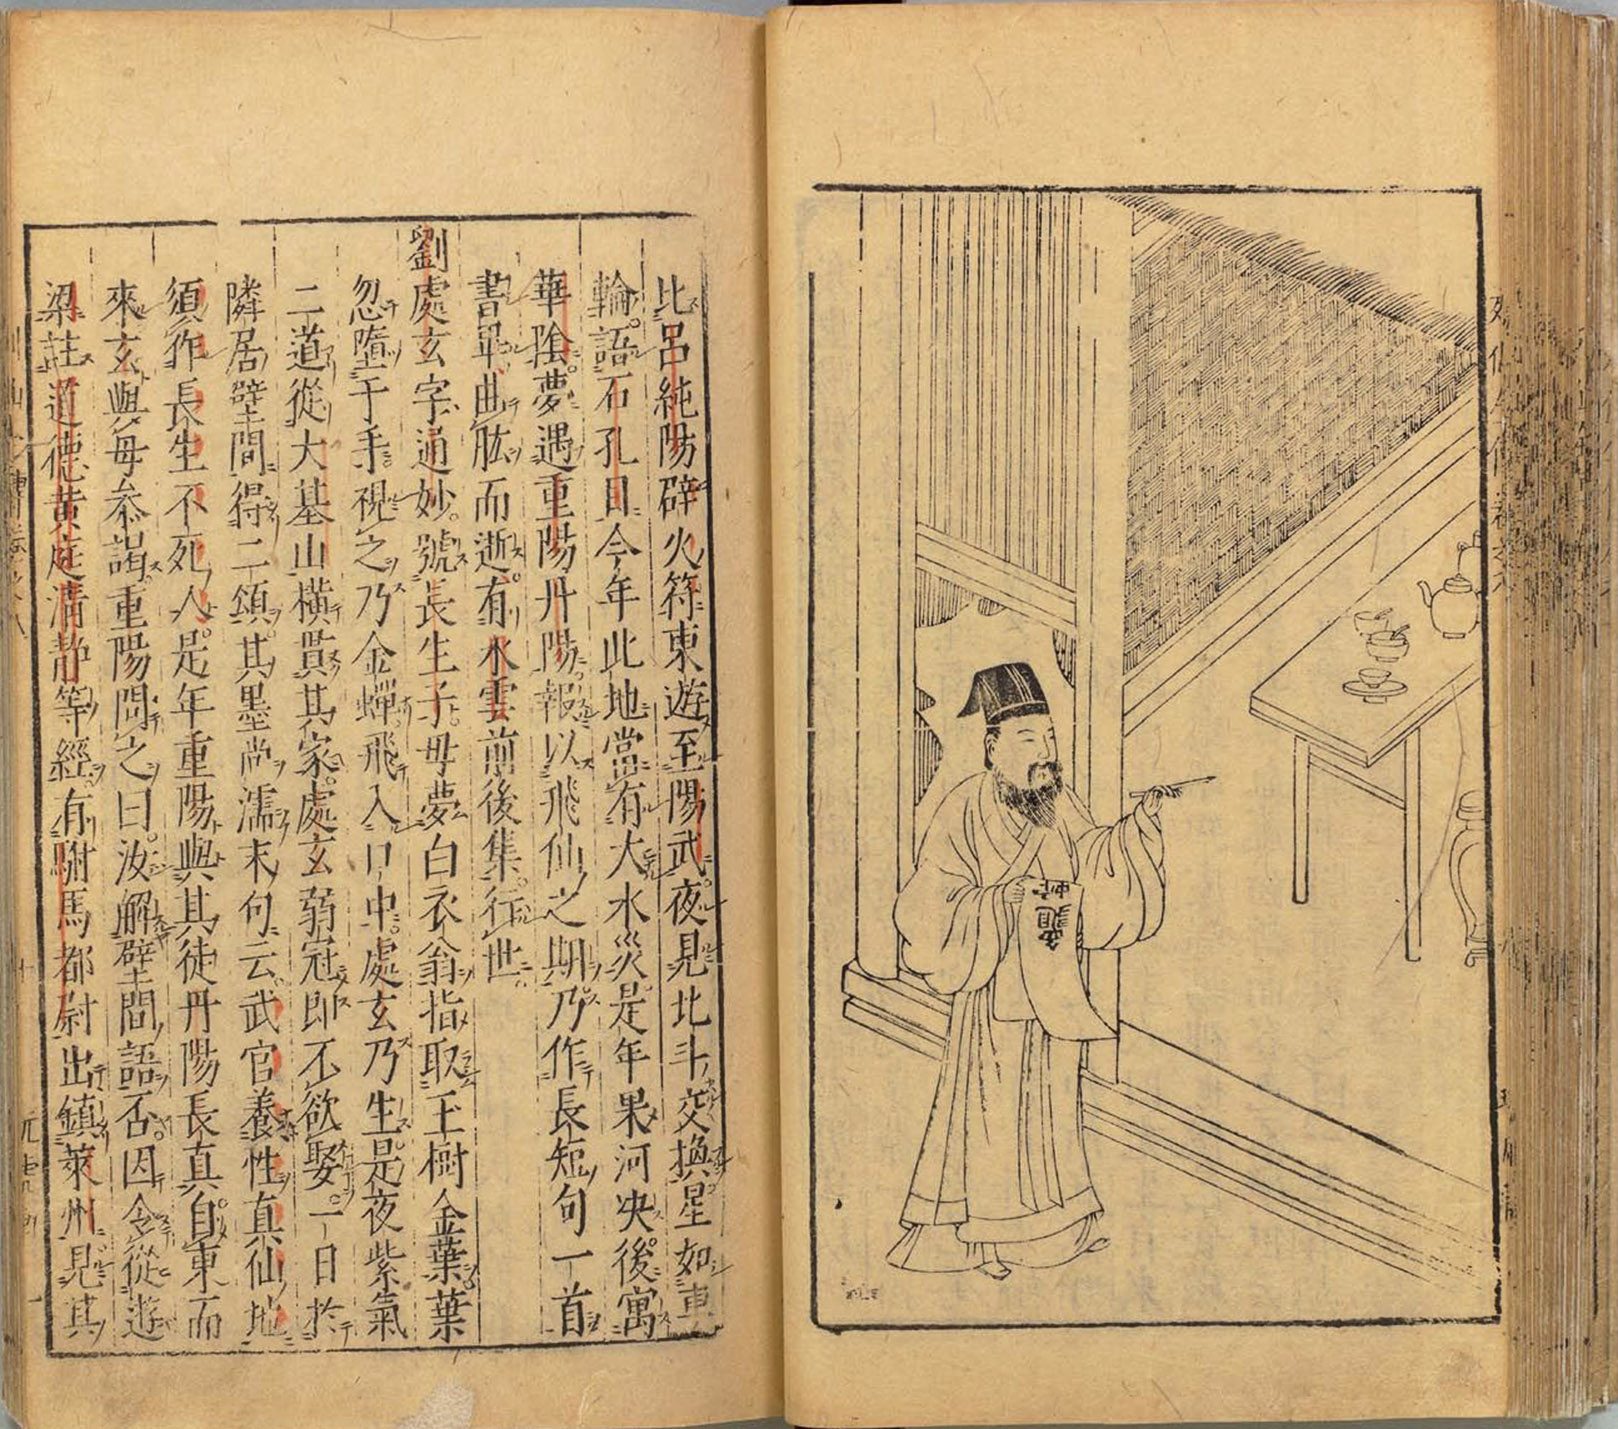 龜
蛇
比呂純陽辟火符東遊至陽武夜見北斗交換星如車
輪語石孔目今年此地當有大水災是年果河决後寓
華陰夢遇重陽丹陽報以飛仙之期乃作長短句一首
書畢曲肱而逝有水雲前後集行世
劉處玄字通妙號長生子母夢白衣翁指取玉樹金葉葉
忽墮于手視之乃金蟬飛入口中處玄乃生是夜紫氣
二道從大基山橫貫其家處玄弱冠即不欲娶一日於
隣居壁間得二頌其墨尚濡末句云武官養性真仙地
須作長生不死人是年重陽與其徒丹陽長真自東而
來玄與母叅謁重陽問之曰汝解壁間語否因令從遊
梁註道德黄庭清静等經有駙馬都尉出鎮萊州見其